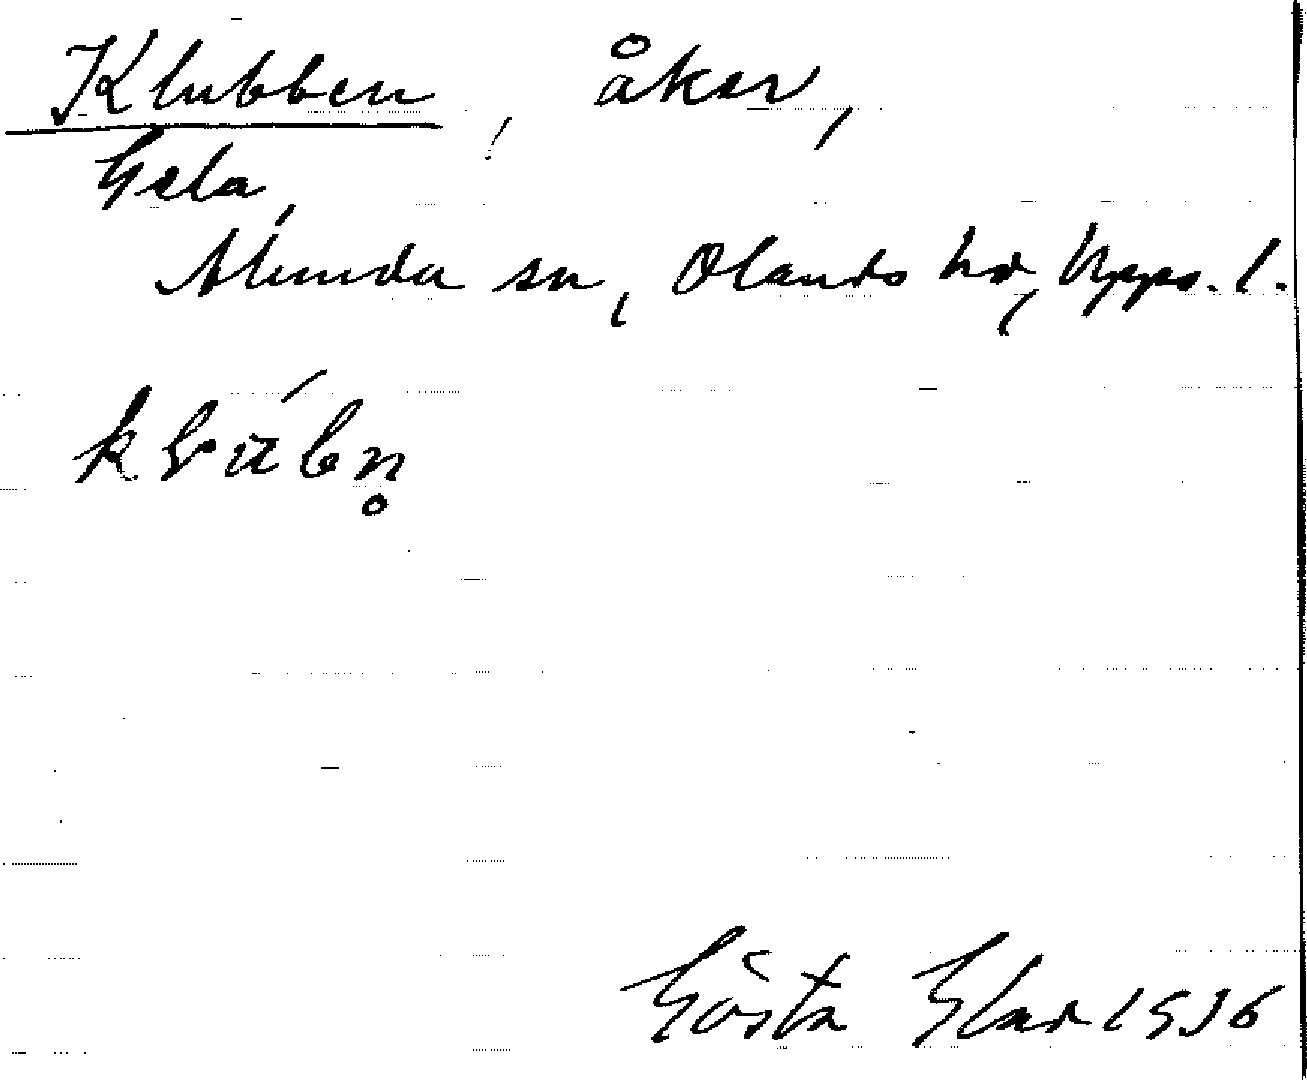 Klubben, åker,
Gela,
Alunda sn, Olands hd, Upps. l.
klúbn̥
Gösta Glad 1936